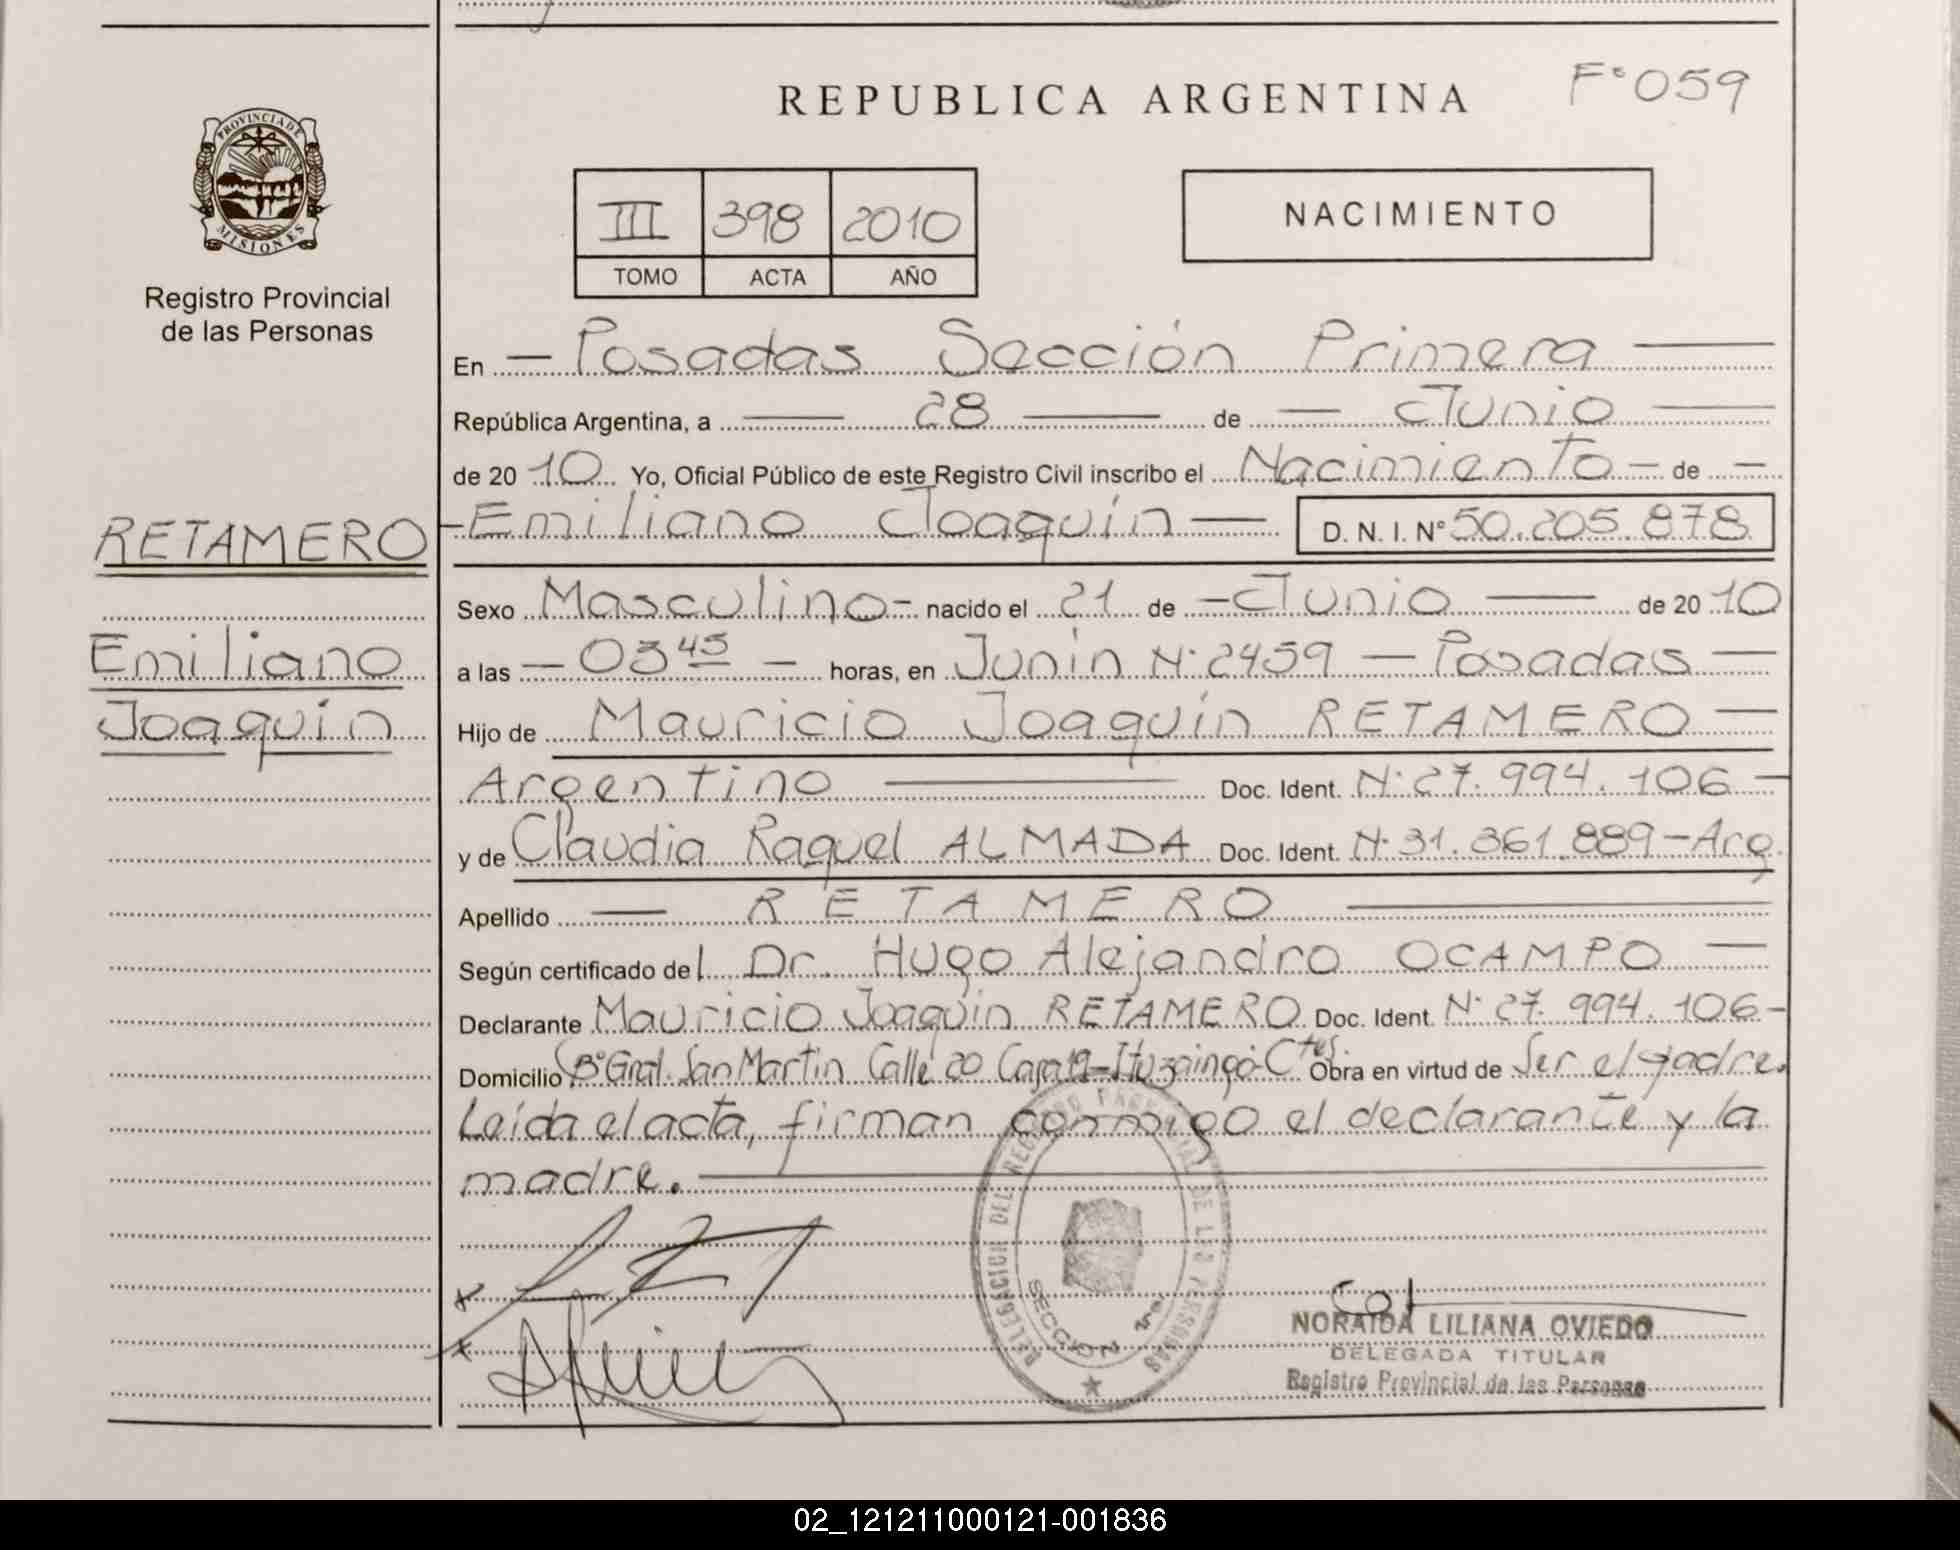 REPUBLICA ARGENTINA
Fº 059
PROVINCIA DE MISIONES
Registro Provincial
de las Personas
III 398 2010
TOMO ACTA AÑO
NACIMIENTO
RETAMERO
Emiliano
Joaquín
En — Posadas Sección Primera —
República Argentina, a — 28 — de — Junio —
de 20 10 Yo, Oficial Público de este Registro Civil inscribo el Nacimiento — de —
— Emiliano Joaquín — D. N. I. Nº 50.205.878
Sexo Masculino - nacido el 21 de — Junio — de 20 10
a las — 03 45 — horas, en Junín Nº 2459 — Posadas —
Hijo de Mauricio Joaquín RETAMERO —
Argentino — Doc. Ident. Nº 27.994.106 —
y de Claudia Raquel ALMADA Doc. Ident. Nº 31.361.889 - Arg.
Apellido — RETAMERO —
Según certificado del Dr. Hugo Alejandro OCAMPO —
Declarante Mauricio Joaquín RETAMERO Doc. Ident. Nº 27.994.106 -
Domicilio Bº Gral. San Martín Calle 20 Casa - Ituzaingó - Ctes. Obra en virtud de Ser el padre.
Leída el acta, firman conmigo el declarante y la
madre. —
DELEGACION DEL REGISTRO PROVINCIAL DE LAS PERSONAS
SECCION 1ra
NORAIDA LILIANA OVIEDO
DELEGADA TITULAR
Registro Provincial de las Personas
02_121211000121-001836